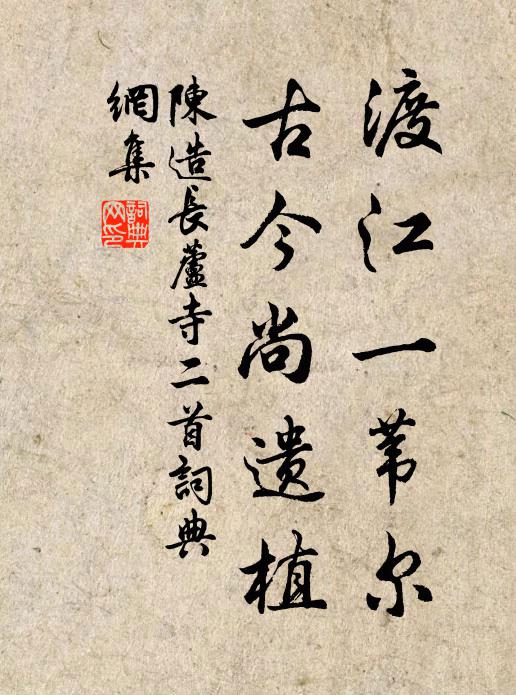 渡江一苇尔
古今尚遗植
陳造長蘆寺二首詞典
網集
詞典
网印